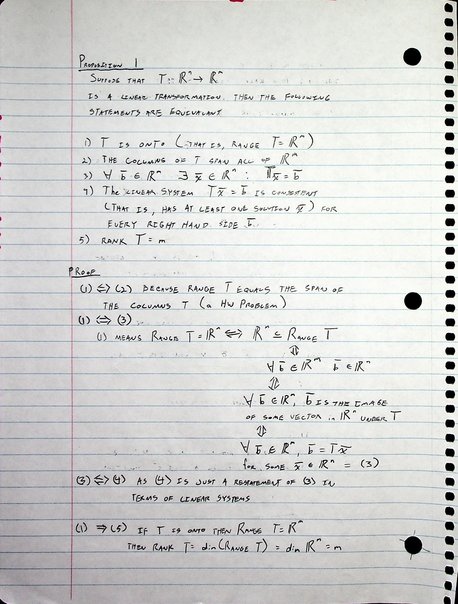 PROPOSITION 1
SUPPOSE THAT T: ℝⁿ → ℝᵐ
IS A LINEAR TRANSFORMATION. THEN THE FOLLOWING
STATEMENTS ARE EQUIVALENT
1) T IS ONTO (THAT IS, RANGE T = ℝᵐ)
2) THE COLUMNS OF T SPAN ALL OF ℝᵐ
3) ∀ b̄ ∈ ℝᵐ ∃ x̄ ∈ ℝⁿ : Tx̄ = b̄
4) The LINEAR SYSTEM Tx̄ = b̄ IS CONSISTENT
(THAT IS, HAS AT LEAST ONE SOLUTION x̄) FOR
EVERY RIGHT HAND SIDE b̄.
5) RANK T = m
PROOF
(1) ⇔ (2) BECAUSE RANGE T EQUALS THE SPAN OF
THE COLUMNS T (a HW PROBLEM)
(1) ⇔ (3)
(1) MEANS RANGE T = ℝᵐ ⇔ ℝᵐ ⊆ RANGE T
⇕
∀ b̄ ∈ ℝᵐ b̄ ∈ ℝᵐ
⇕
∀ b̄ ∈ ℝᵐ, b̄ IS THE IMAGE
OF SOME VECTOR in ℝⁿ UNDER T
⇕
∀ b̄ ∈ ℝᵐ, b̄ = Tx̄
for some x̄ ∈ ℝⁿ = (3)
(3) ⇔ (4) AS (4) IS JUST A RESTATEMENT OF (3) IN
TERMS OF LINEAR SYSTEMS
(1) ⇒ (5) IF T IS ONTO THEN RANGE T = ℝᵐ
THEN RANK T = dim(RANGE T) = dim ℝᵐ = m